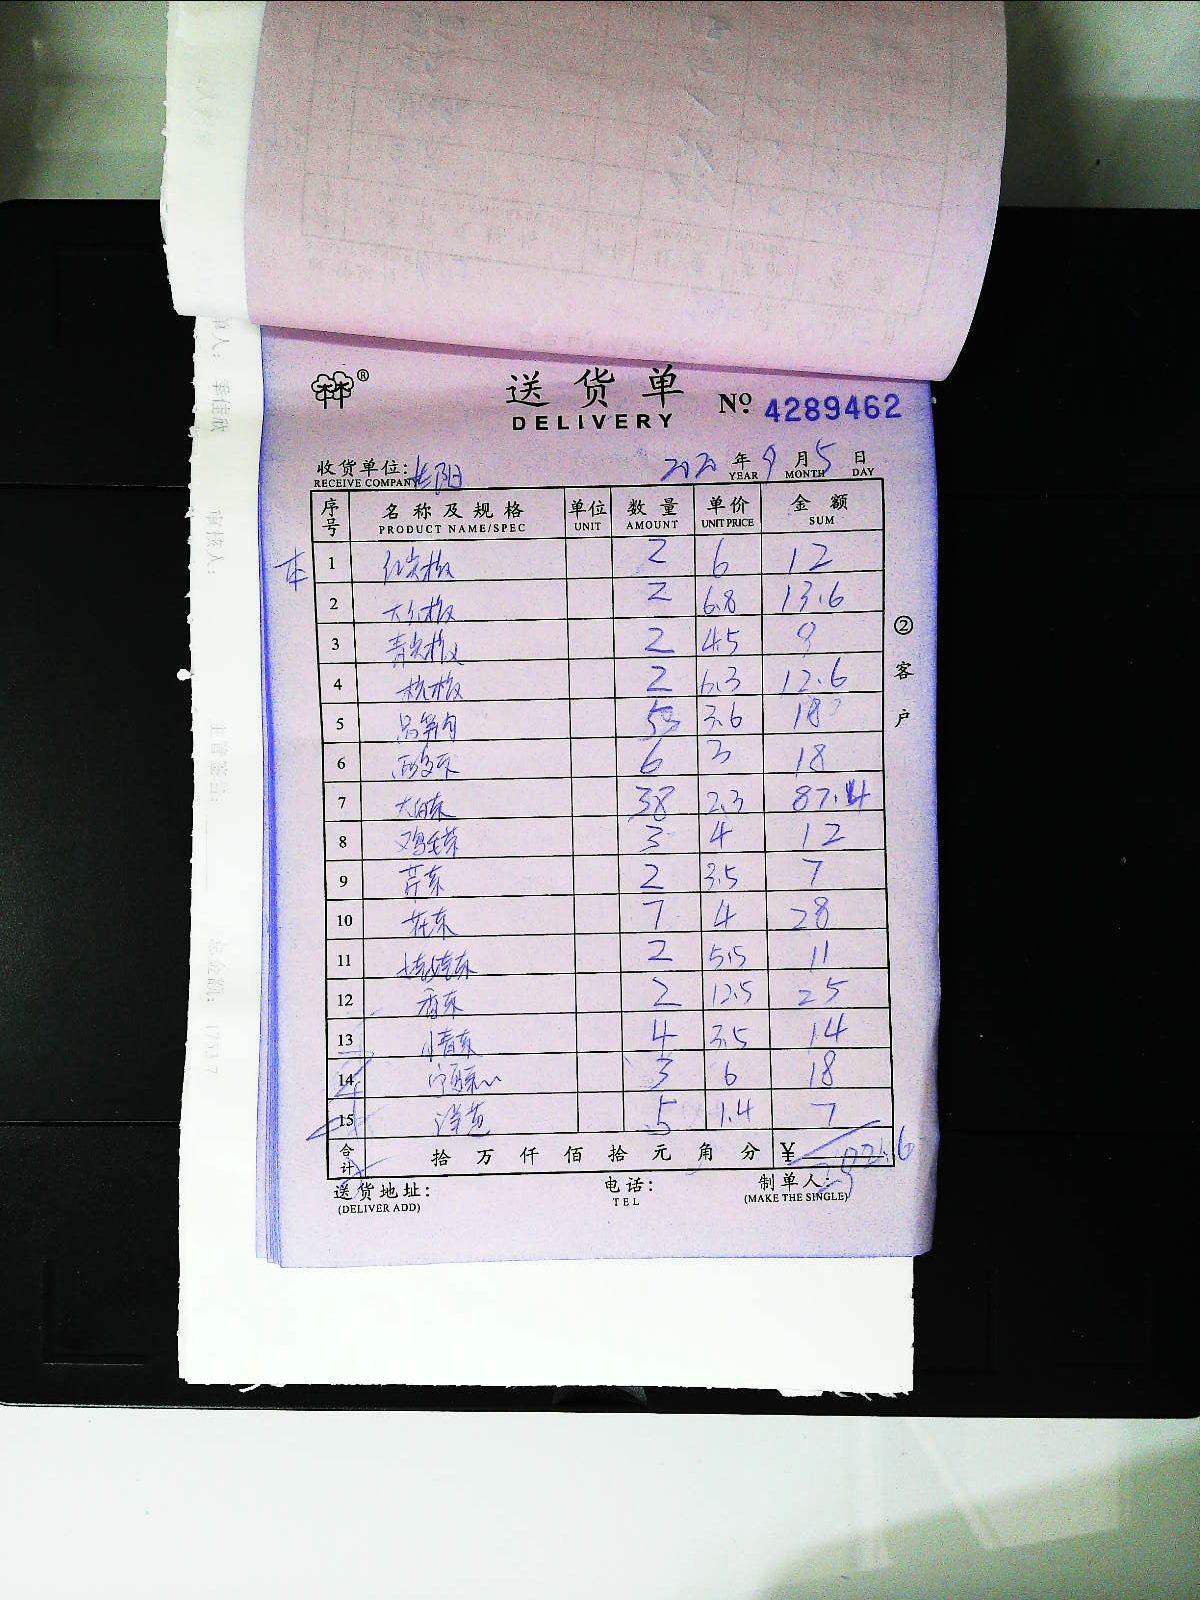 送货单
DELIVERY
№ 4289462
收货单位:
RECEIVE COMPANY
年 9 月 5 日
YEAR MONTH DAY
序号 名称及规格 单位 数量 单价 金额
PRODUCT NAME/SPEC UNIT AMOUNT UNIT PRICE SUM
1 红尖椒 2 6 12
2 2 6.8 13.6
3 青尖椒 2 4.5 9
4 杭椒 2 6.3 12.6
5 5 3.6 18
6 6 3 18
7 大白菜 38 2.3 87.4
8 鸡毛菜 3 4 12
9 芹菜 2 3.5 7
10 花菜 7 4 28
11 2 5.5 11
12 香菜 2 12.5 25
13 小青菜 4 3.5 14
14 3 6 18
15 洋芋 5 1.4 7
合计 拾 万 仟 佰 拾 元 角 分 ¥
送货地址: 电话: 制单人:
(DELIVER ADD) TEL (MAKE THE SINGLE)
②客户